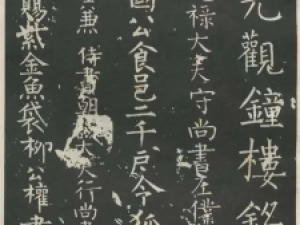 元觀鐘樓銘
祿大夫守尚書左僕
國公食邑二千戶令狐
兼侍書朝散大夫行尚書
賜紫金魚袋柳公權書